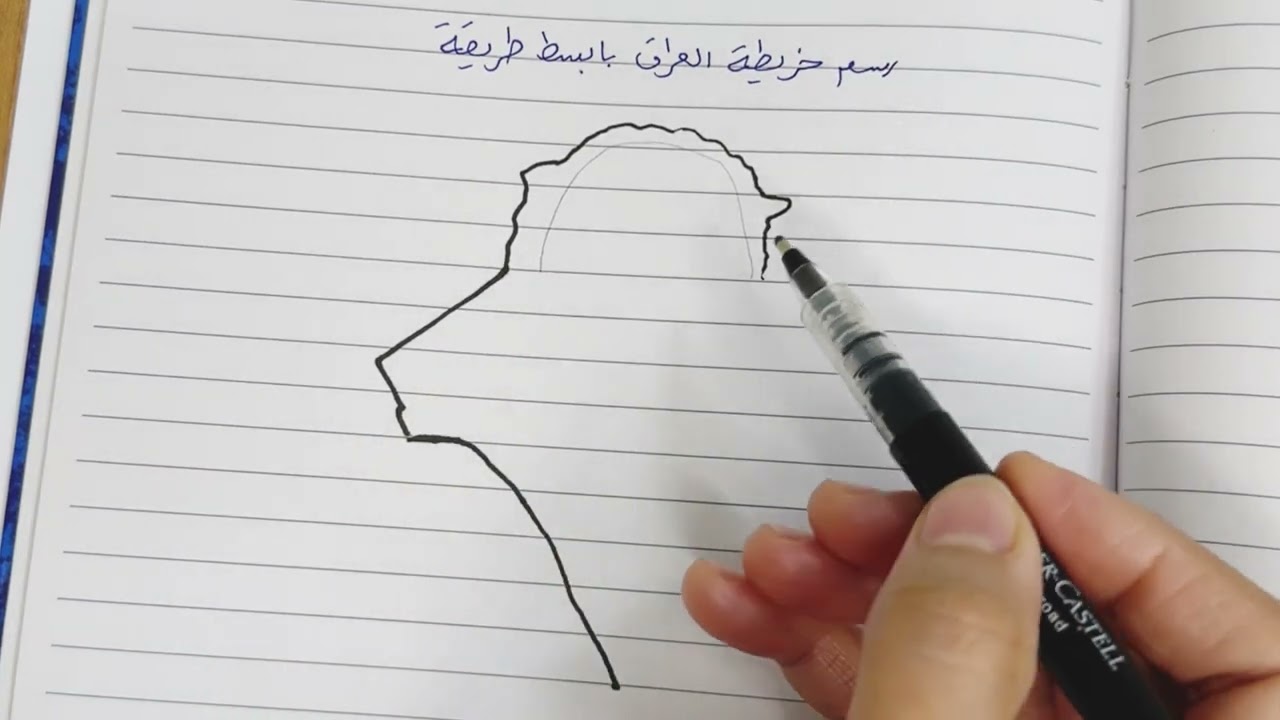 رسم خريطة العراق بابسط طريقة
ER-CASTELL